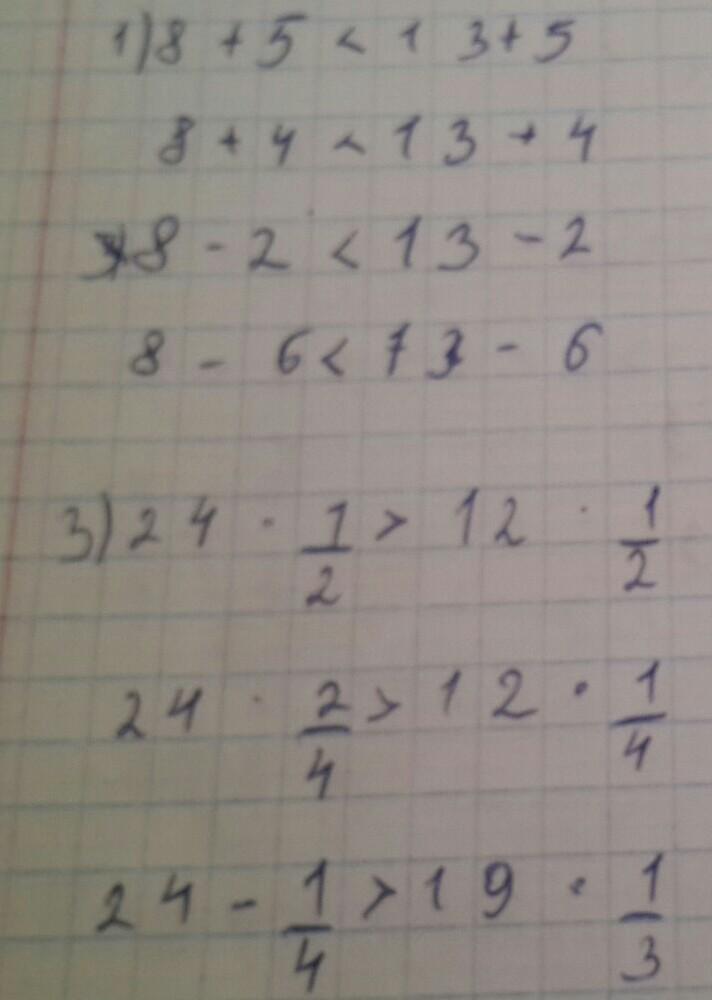 1) 8 + 5 < 13 + 5
8 + 4 < 13 + 4
8 - 2 < 13 - 2
8 - 6 < 13 - 6
3) 24 · 1/2 > 12 · 1/2
24 · 2/4 > 12 · 1/4
24 - 1/4 > 19 · 1/3